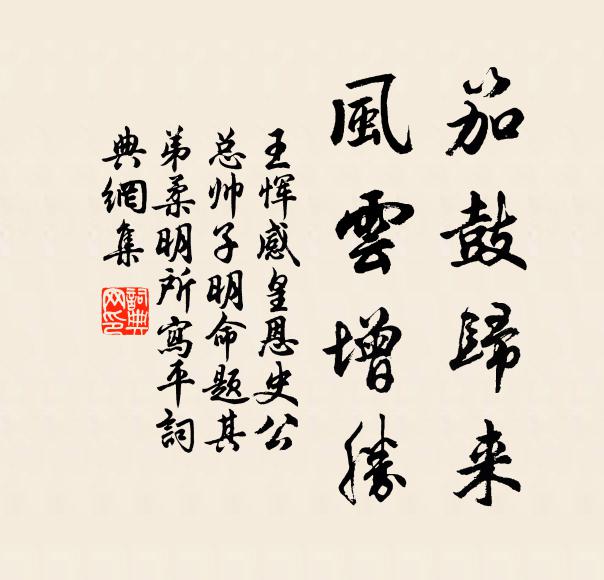 笳鼓歸来
風雲增勝
王恽感皇恩史公
总帅子明命题其
弟柔明所寫平詞
典網集
詞典网印